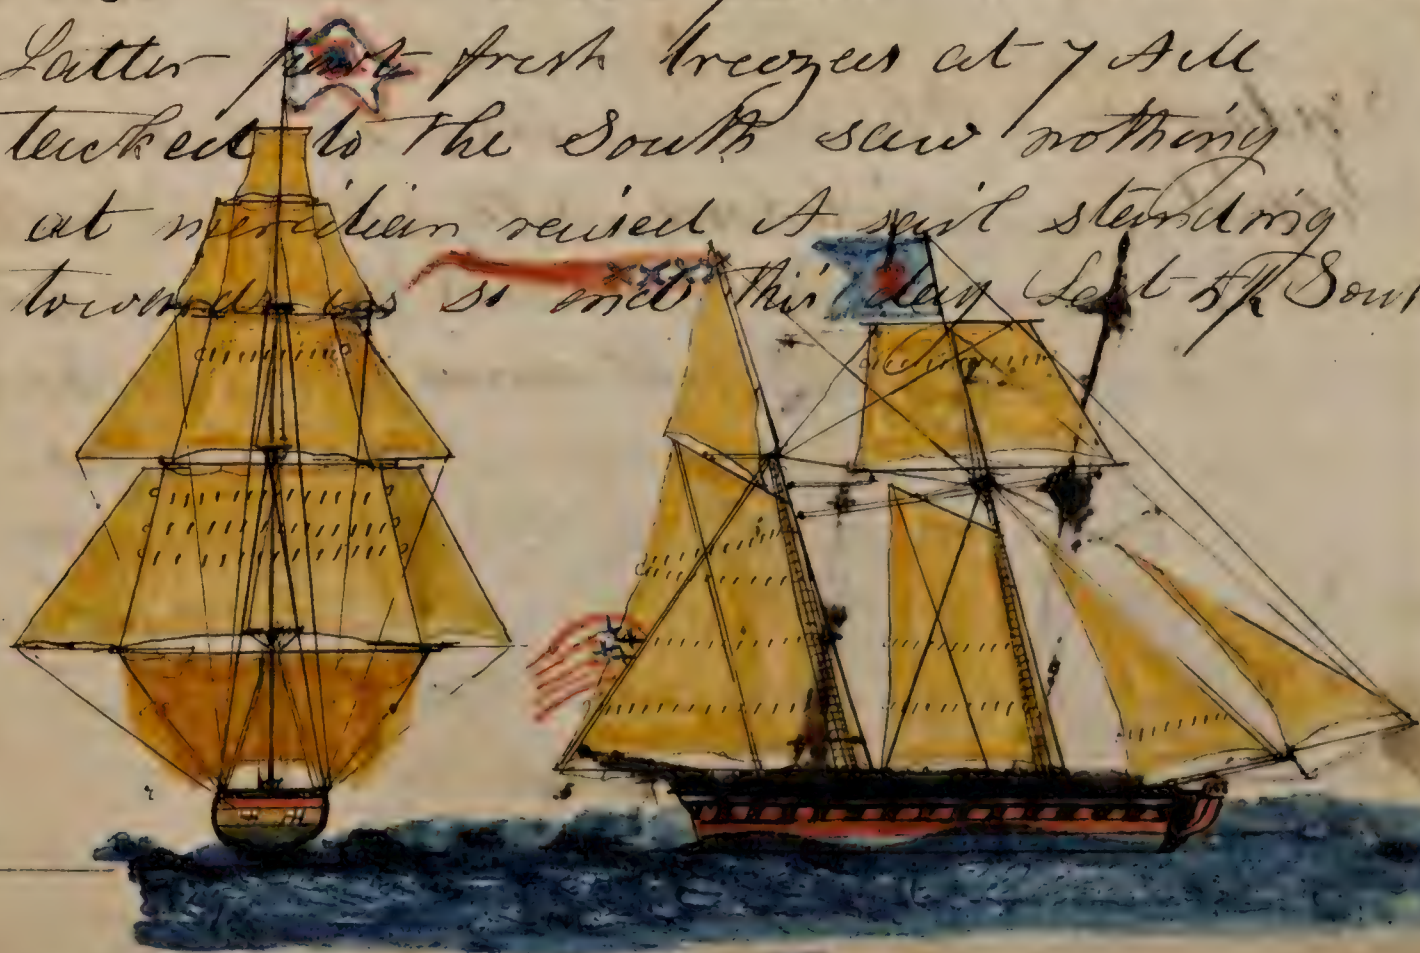 Latter part fresh breezes at 7 AM
tacked to the South saw nothing
at meridian raised A sail standing
towards us so ends this day Lat